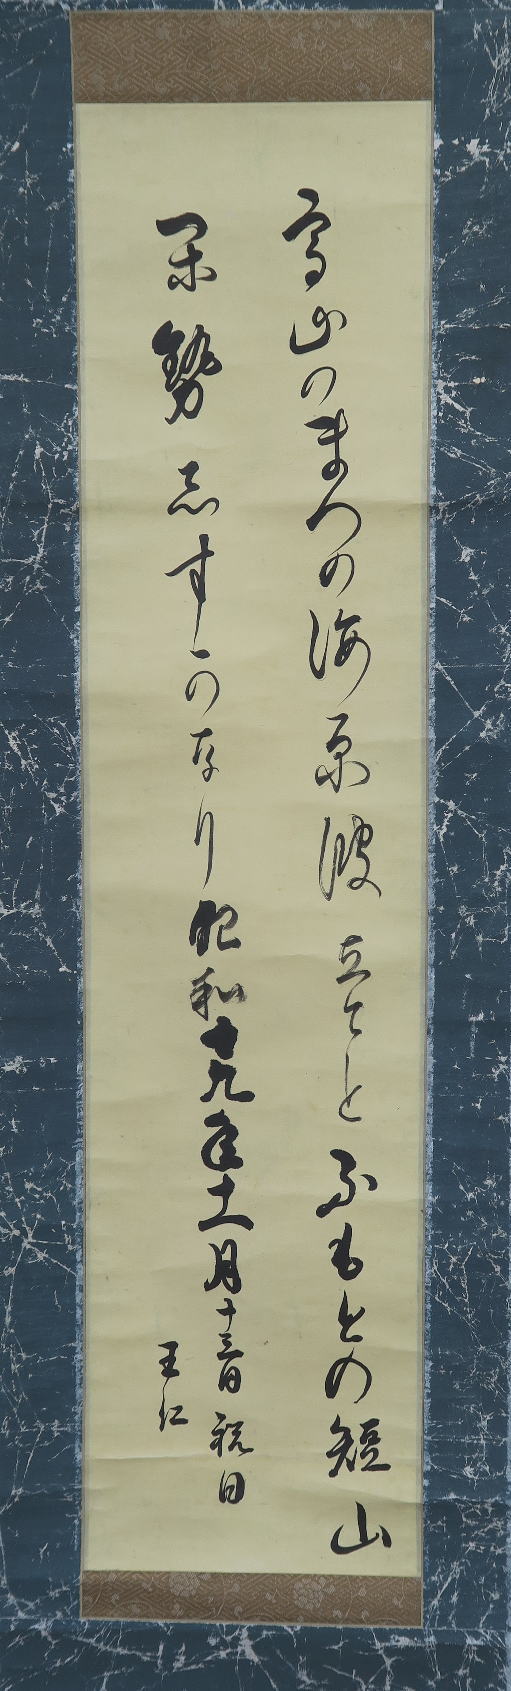 高山のまつの海原波立てとふもとの短山
勢志すかなり昭和十九年十一月十三日祝日
王仁